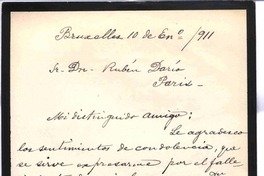 Bruxelles 10 de Enº/911
Sr. Don Rubén Darío
Paris-
Mi distinguido Amigo:
Le agradesco
los sentimientos de condolencia, que
se sirve expresarme por el falle